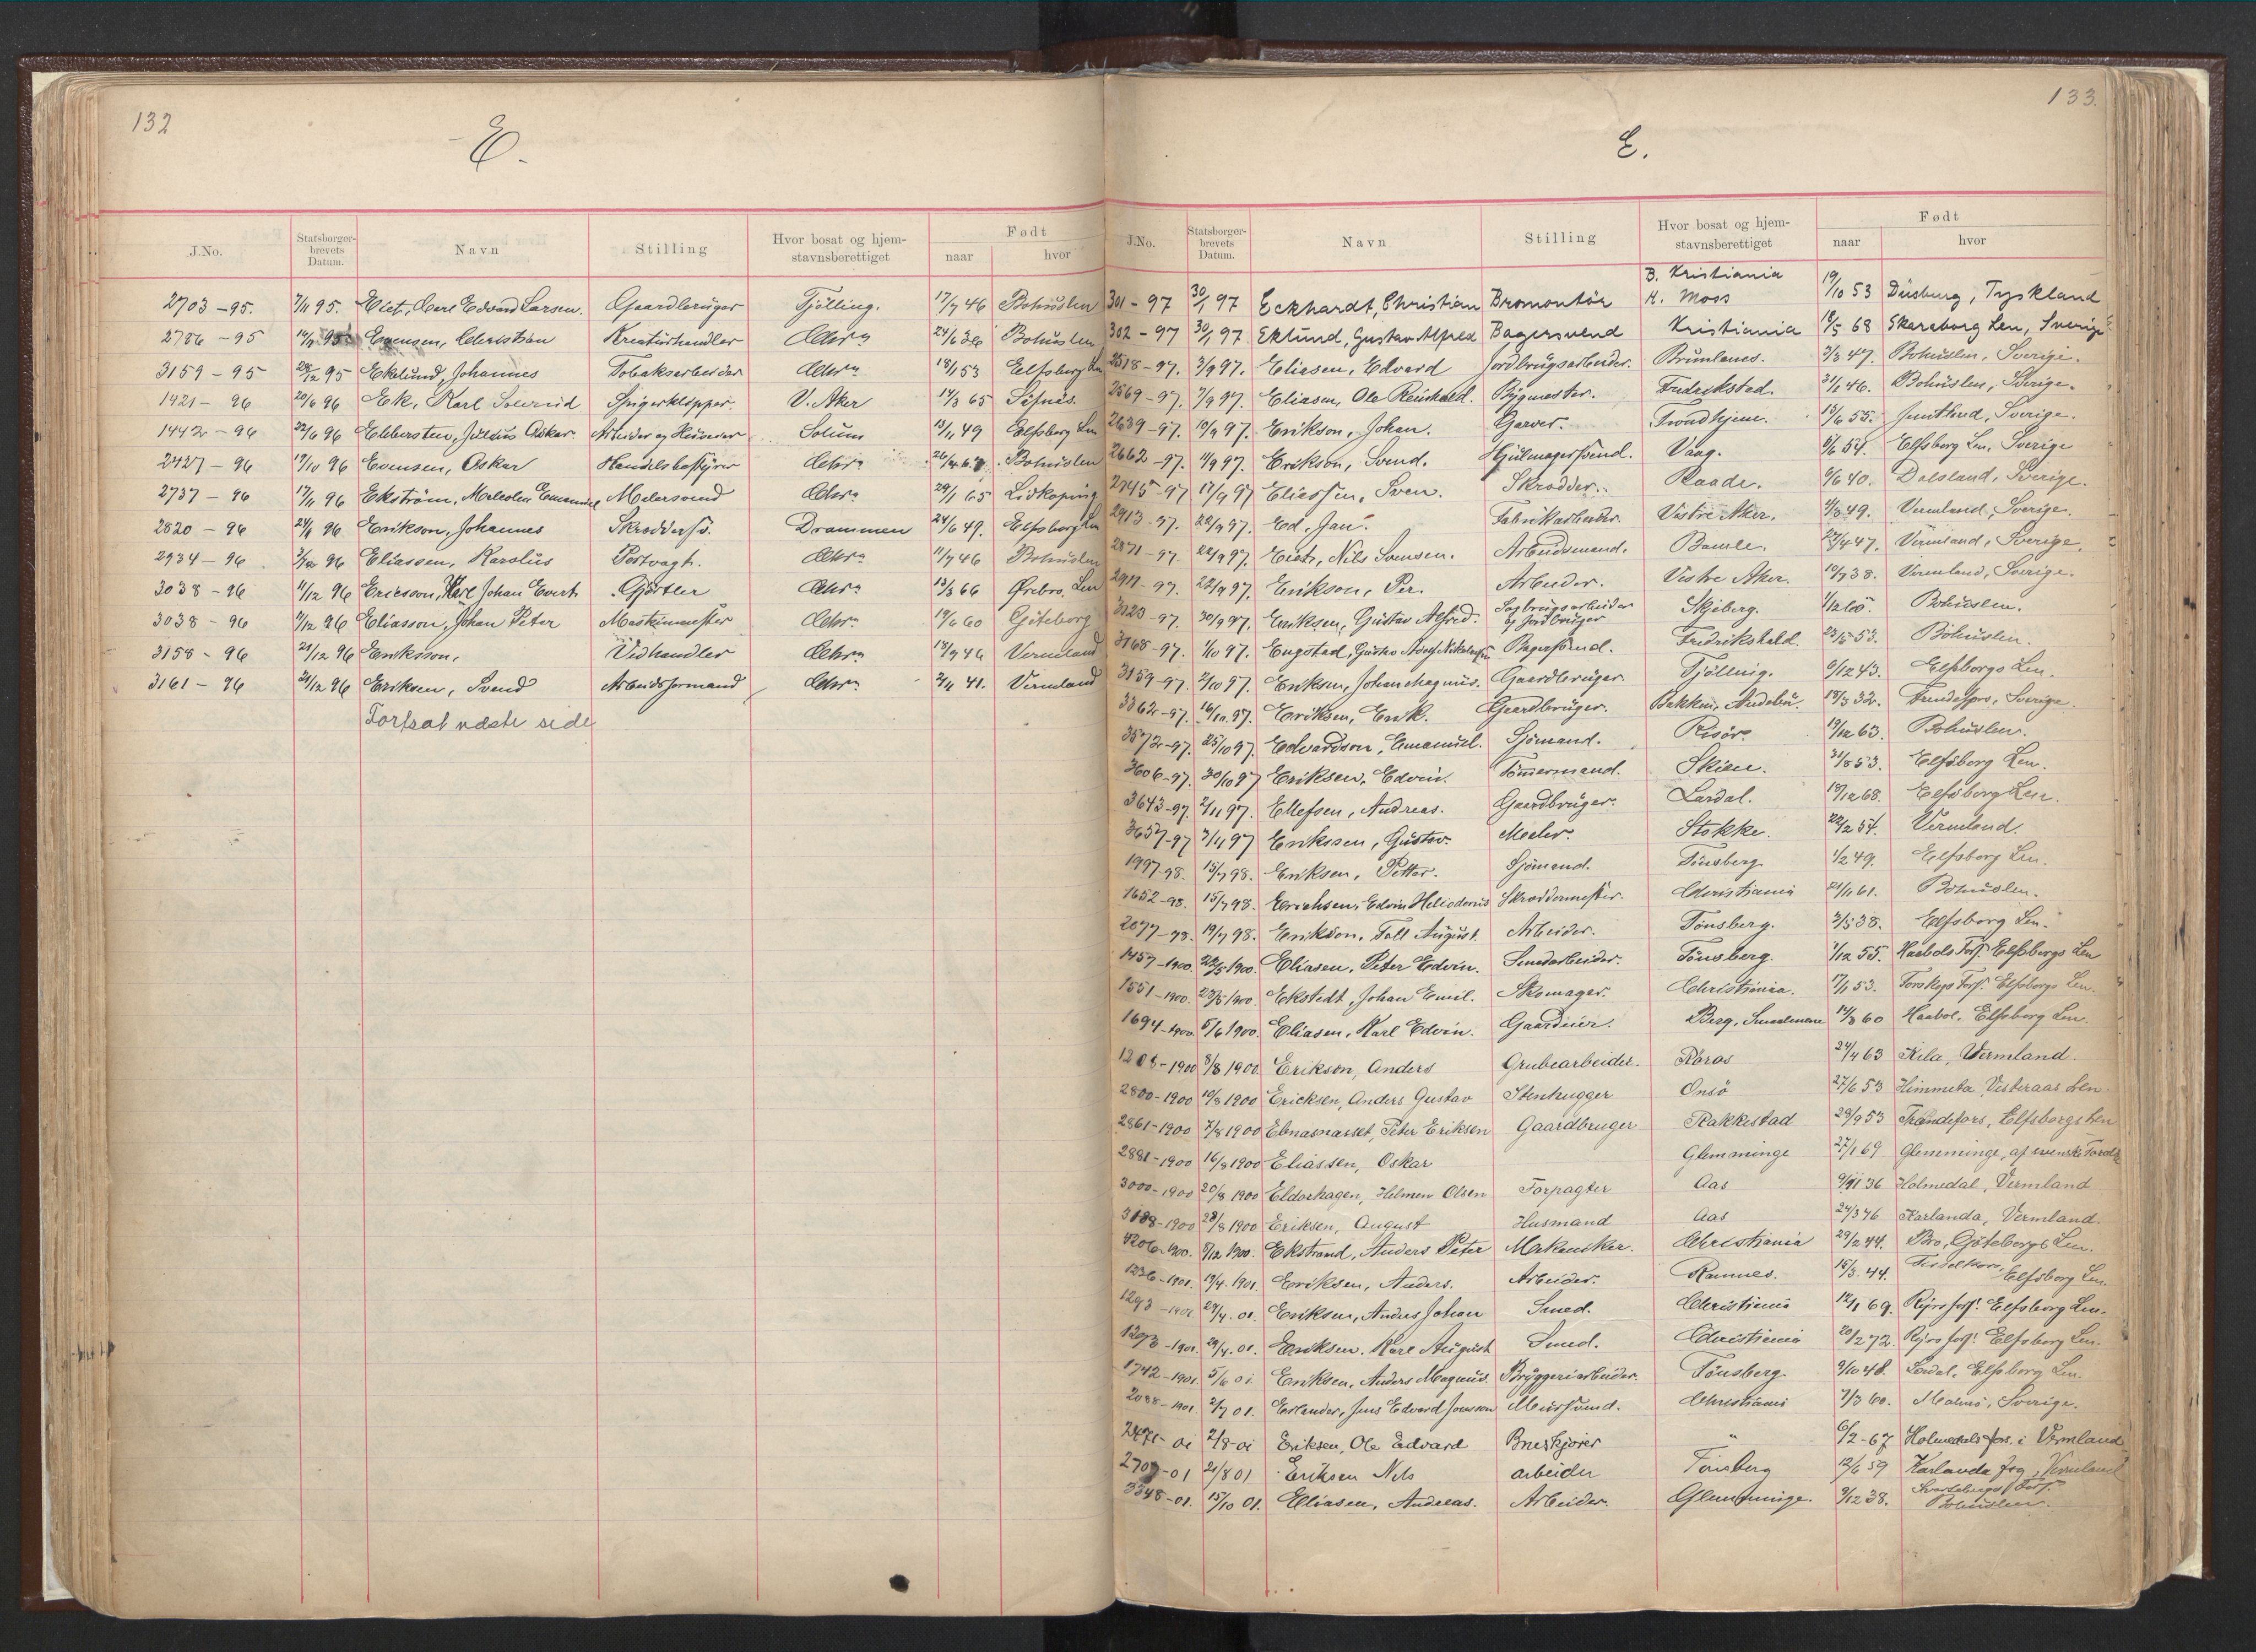 132
E.
J.No. Statsborger-brevets Datum. Navn Stilling Hvor bosat og hjem-stavnsberettiget Født naar hvor
2703 - 95. 7/11 95. Carl Edvard Larsen. Gaardbruger Tjölling. 17/7 46 Bohuslen
2786 - 95 95 Evensen, Christian Kreaturhandler Chra 24/6 36 Bohuslen
3159 - 95 28/12 95 Ekelund, Johannes Tobaksarbeider Chra 18/1 53 Elfsborg Len
1421 - 96 20/6 96 Ek, Karl Spigerklipper. V. Aker 14/3 65
1442 - 96 22/6 96 Ebbersten, Julius Oskar Arbeider og Huseier Solum 13/1 49 Elfsborg Len
2427 - 96 19/10 96 Evensen, Oskar Handelsbestyrer Chra Bohuslen
2737 - 96 17/11 96 Ekström, Malcolm Emanuel Malersvend Chra 29/1 65 Lidkøping
2820 - 96 24/11 96 Erikson, Johannes Skræddersv. Drammen 24/6 49. Elfsborg Len
2934 - 96 96 Eliassen, Karolus Portvagt. Chra 11/7 46 Bohuslen
3038 - 96 11/12 96 Ericsson, Karl Johan Evert Gjørtler Chra 13/3 66 Ørebro. Len
3038 - 96 11/12 96 Eliasson, Johan Peter Maskinmester Chra 19/6 60 Göteborg
3158 - 96 21/12 96 Eriksson, Vedhandler Chra 18/7 46 Vermland
3161 - 96 21/12 96 Eriksen, Svend Arbeidsformand Chra 2/11 41. Vermland
Fortsat næste side
133.
E.
J.No. Statsborger-brevets Datum. Navn Stilling Hvor bosat og hjem-stavnsberettiget Født naar hvor
301 - 97 30/1 97 Eckhardt, Christian Bromontör B. Kristiania H. Moss 19/10 53 Duisburg, Tyskland
302 - 97 30/1 97. Eklund, Gustav Alfred Bagersvend Kristiania 18/5 68 Skaraborg Len, Sverige
2518 - 97. 3/9 97. Eliasen, Edvard Jordbrugsarbeider. Brunlanes. 3/3 47. Bohuslen, Sverige.
2569 - 97. 7/9 97. Eliasen, Ole Reinhold. Bygmester. Fredrikstad. 46. Bohuslen, Sverige.
2639 - 97. 10/9 97. Erikson, Johan. Garver. Trondhjem. 13/6 55. Jemtland, Sverige.
2662 - 97. 11/9 97. Erikson, Svend. Hjulmagersvend. Vaag. 5/6 54. Elfsborg Len, Sverige
2745 - 97 17/9 97 Eliassen, Sven. Skrædder. Raade. 6/6 40. Dalsland, Sverige.
2913 - 97. 22/9 97. Ed, Jan. Fabrikarbeider. Vestre Aker. 4/3 49. Vermland, Sverige.
2871 - 97. 22/9 97. Nils Svensen. Arbeidsmand. Bamle. 27/4 47. Vermland, Sverige.
2911 - 97. 22/9 97. Erikson, Per. Arbeider. Vestre Aker. 10/7 38. Vermland, Sverige.
3123 - 97. 30/9 97. Eriksen, Gustav Alfred. Sagbrugsarbeider og jordbruger Skjeberg. 1/12 60. Bohuslen.
3168 - 97. 1/10 97. Engstad, Gustav Adolf Nikolaisen Bagersvend. Fredrikshald. 23/5 53. Bohuslen.
3159 - 97. 2/10 97. Eriksen, Johan Magnus. Gaardbruger. Tjölling. 6/12 43. Elfsborgs Len.
3362 - 97. 16/10. 97. Eriksen, Erik. Gaardbruger. Bakken, Andebu. 18/3 32. Sverige.
3572 - 97. 25/10 97. Edvardson, Emanuel. Sjömand. Risör. 19/12 63. Bohuslen.
3606 - 97. 30/10 97 Eriksen, Edvin. Tömmermand. Skien. 31/8 53. Elfsborg Len.
3643 - 97. 2/11 97. Ellefsen, Andreas. Gaardbruger. Lardal. 18/12 68. Elfsborg Len.
3657 - 97 3/11 97 Eriksen, Gustav. Maler. Stokke. 22/2 54. Vermland.
1997 - 98. 15/7 98. Eriksen, Petter. Sjömand. Tönsberg 1/2 49. Elfsborg Len.
1652 - 98. 15/7 98. Erichsen, Edvin Heliodorus Skræddermester. Christiania 21/11 61. Bohuslen.
2077 - 98. 19/7 98. Erikson, Fall August. Arbeider. Tönsberg. 3/5 38. Elfsborg Len.
1457 - 1900. 22/5 1900. Eliasen, Peter Edvin. Smedarbeider. Tönsberg. 1/12 55. Haabols Fors. Elfsborgs Len
1551 - 1900. 29/5 1900. Eckstedt, Johan Emil. Skomager. Christiania. 17/1 53. Torskogs Fors. Elfsborgs Len.
1694 - 1900. 5/6 1900. Eliasen, Karl Edvin. Gaardeier. Berg, Smaalenene 14/3 60 Haabol, Elfsborg Len.
1208 - 1900 8/8 1900. Erikson, Anders Grubearbeider. Röros 24/4 63 Kila, Vermland.
2800 - 1900 10/8 1900 Ericksen, Anders Gustav Stenhugger Onsö 27/6 53 Himmeta, Vesteraas Len
2861 - 1900 7/8 1900 Ebnasnasset, Peter Eriksen Gaardbruger Rakkestad 29/9 53 Tfandefors, Elfsborgs Len
2881 - 1900 16/8 1900 Eliassen, Oskar Glemminge 27/1 69 Glemminge, af svenske
3000 - 1900 20/8 1900 Eldorhagen, Helmer Olsen Forpagter Aas 9/11 36 Holmedal, Vermland
3188 - 1900 28/8 1900 Eriksen, August Husmand Aas 24/3 46 Karlanda, Vermland.
1900. 8/12 1900. Ekstrand, Anders Peter Mekaniker. Christiania 29/2 44. Bro, Göteborgs Len.
1236 - 1901. 19/4. 1901. Eriksen, Anders. Arbeider. Ramnes. 15/3. 44. Elfsborg Len.
1293 - 1901 29/4. 01. Eriksen, Anders Johan Smed. Christiania 12/1 69. Elfsborg Len.
1293 - 1901. 29/4. 01. Eriksen. Karl August Smed. Christiania 20/2 72. Elfsborg Len.
1742 - 1901. 5/6 01. Eriksen, Anders Magnus. Bryggeriarbeider. Tönsberg 9/10 48. Elfsborg Len.
2088 - 1901. 2/7 01. Erlander, Jens Edvard Jonsson Mursvend. Christiania 7/3 60. Malmö, Sverige.
2471 - 01 2/8 - 01 Eriksen, Ole Edvard Bruskjörer " 6/2 - 67 Holmedals fors. i Vermland
2707 - 01 21/8 01 Eriksen Nels arbeider Tönsberg 12/6 59 Karlanda, Vermland
3348 - 01. 15/10 01. Eliasen, Andreas. Arbeider. Glemminge. 9/12 38. Bohuslen.